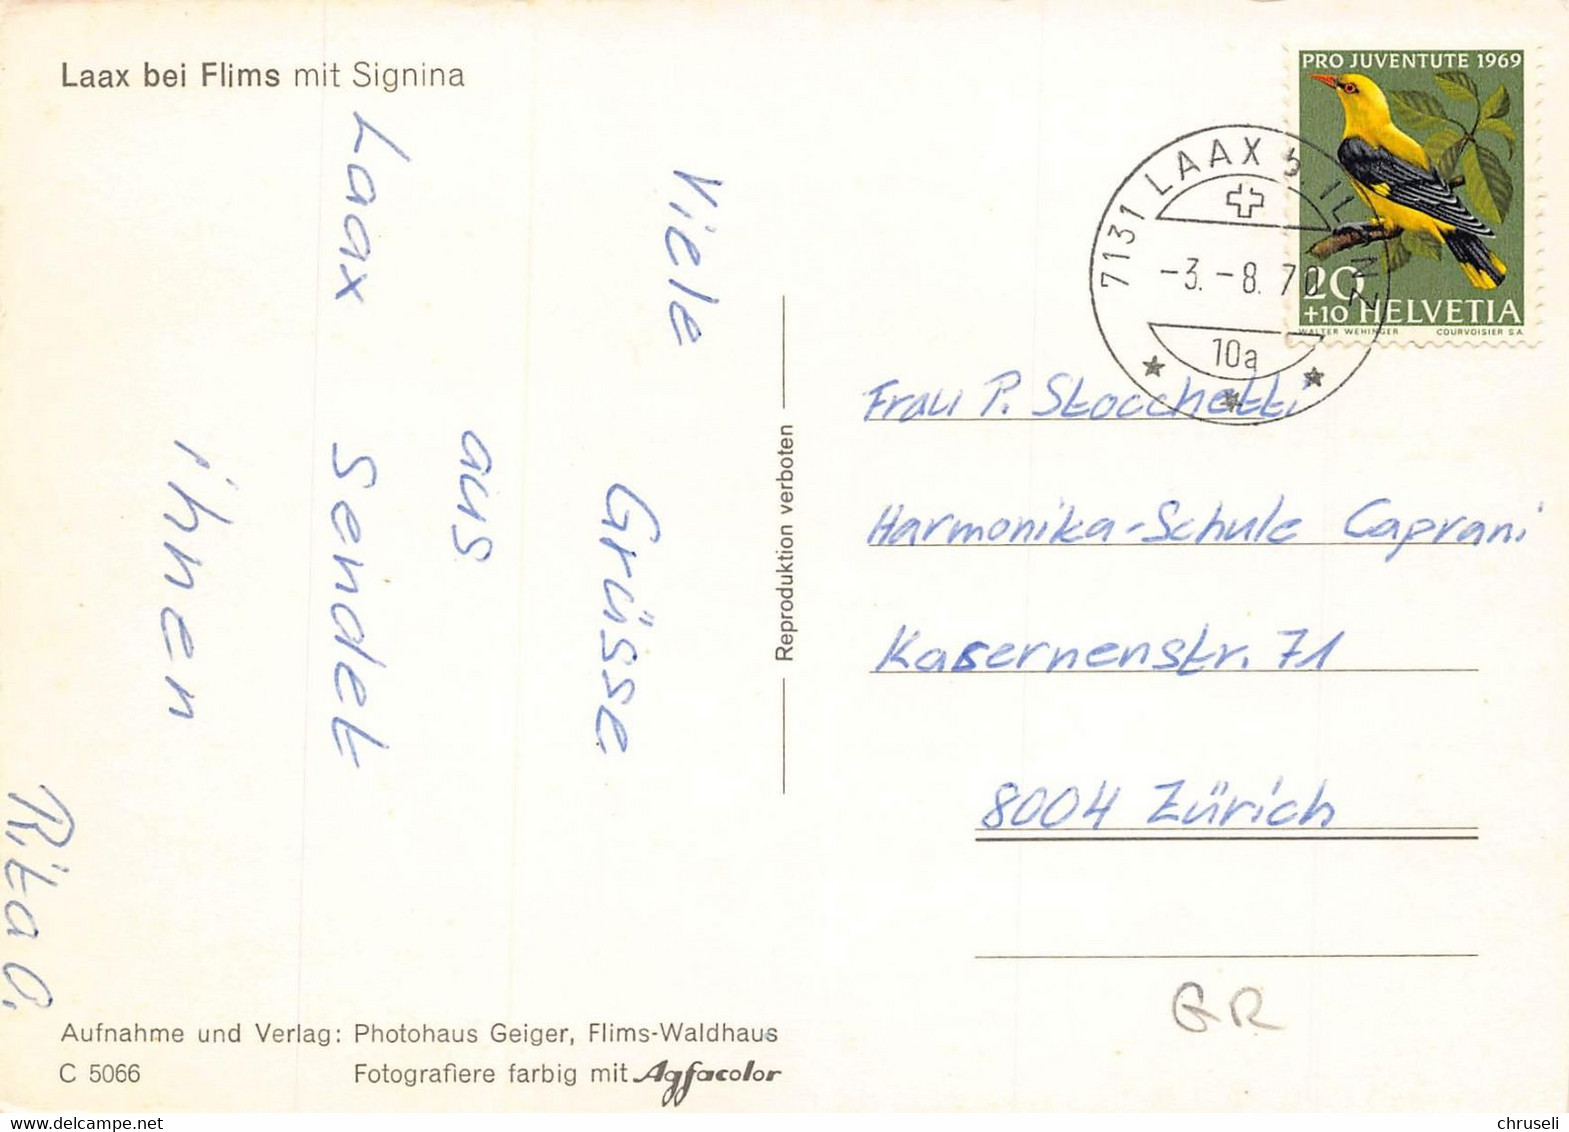 Laax bei Flims mit Signina
Viele
Grüsse
aus
Laax sendet
ihnen
Rita O.
Reproduktion verboten
PRO JUVENTUTE 1969
20
+10 HELVETIA
WALTER WEHINGER COURVOISIER S.A.
7131 LAAX b. ILANZ
-3.-8.70
10a
Frau P. Stocchetti
Harmonika-Schule Caprani
Kasernenstr. 71
8004 Zürich
GR
Aufnahme und Verlag: Photohaus Geiger, Flims-Waldhaus
C 5066 Fotografiere farbig mit Agfacolor
delcampe.net
chruseli